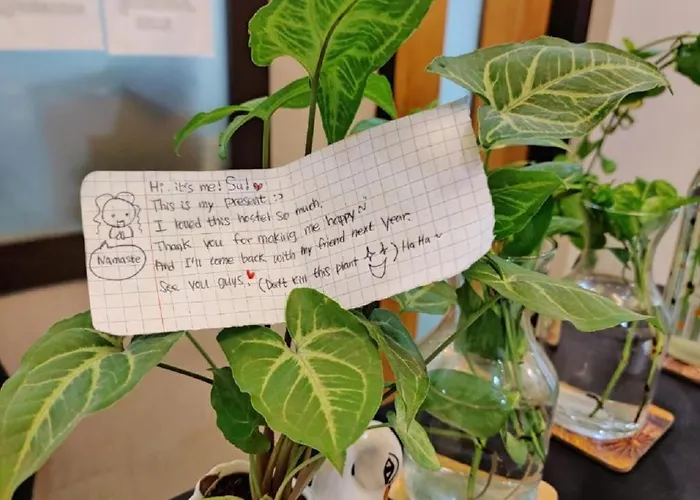 Hi, it's me! Su!
This is my present. :)
I loved this hostel so much.
Thank you for making me happy~
And I'll come back with my friend next year.
See you guys. (Don't kill this plant) Ha Ha ~
Namaste